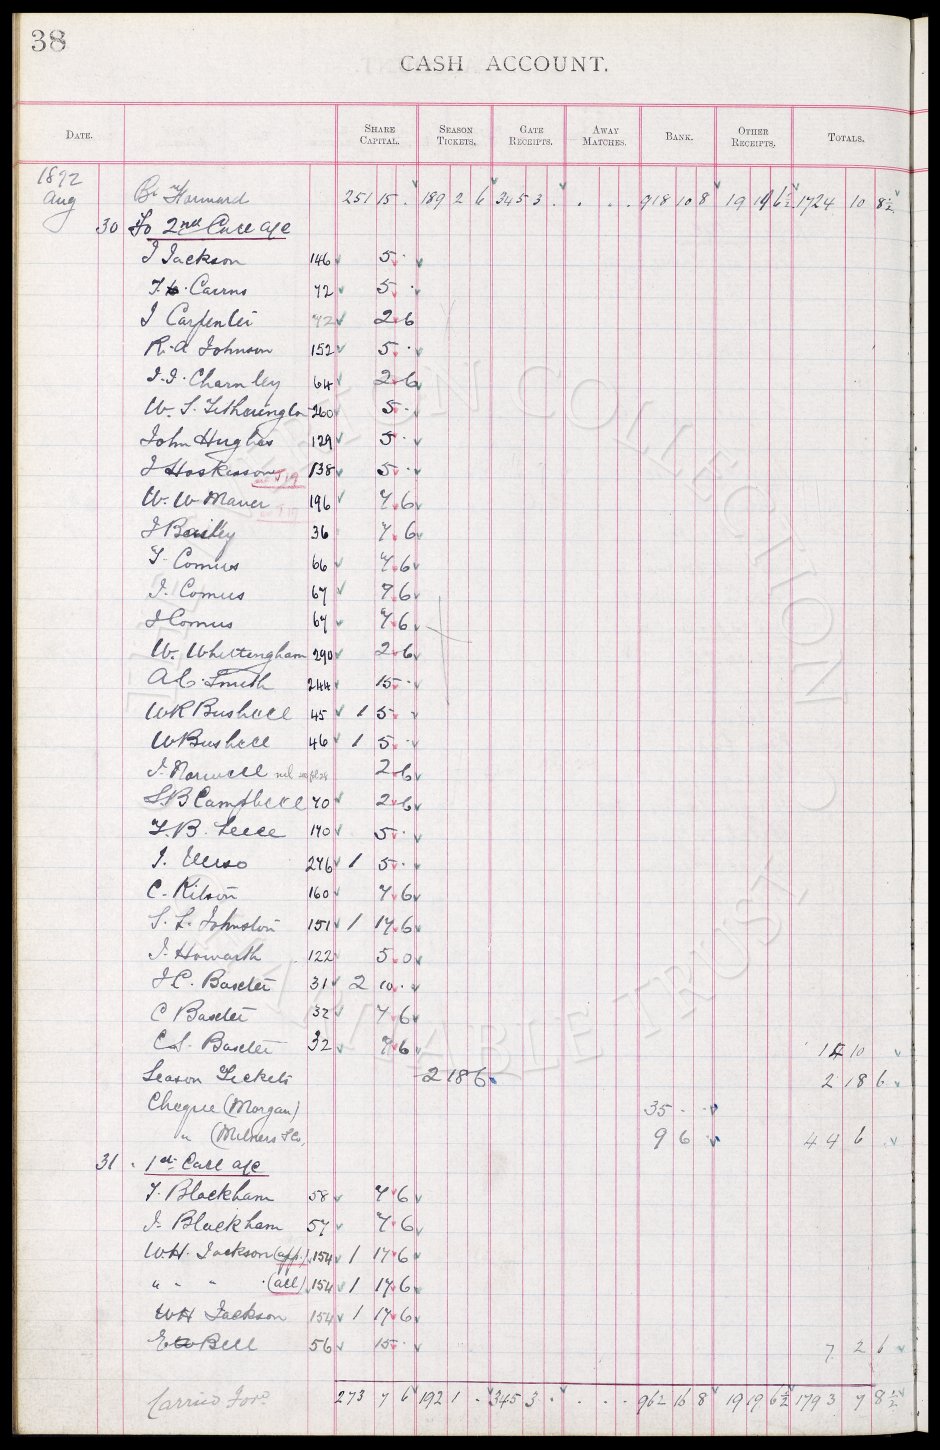 38
CASH ACCOUNT.
DATE. SHARE CAPITAL. SEASON TICKETS. GATE RECEIPTS. AWAY MATCHES. BANK. OTHER RECEIPTS. TOTALS.
1892
Aug Bt Forward 251 15 . 189 2 6 345 3 . . . . 918 10 8 19 19 6½ 1724 10 8½
30 To 2nd Call a/c
J Jackson 146 5 .
T. Cairns 72 5 .
J Carpenter 72 2 6
R. A Johnson 152 5 .
J. J. Charnley 64 2 6
W. S. Titherington 260 5 .
John Hughes 129 5 .
J Hoskisson 138 5 .
W. W Maner 196 7 6
J Bailey 36 7 6
T. Comus 66 7 6
J. Comus 67 7 6
J Comus 67 7 6
W. Whittingham 290 2 6
A C. Smith 244 15 .
W R Bushell 45 1 5 .
W Bushell 46 1 5 .
J. Maxwell 2 6
S. B Campbell 70 2 6
T. B. Leece 170 5 .
J. 276 1 5 .
C. Kitson 160 7 6
S. L. Johnston 151 1 17 6
J. Howarth 122 5 0
J C. Baxter 31 2 10 .
C Baxter 32 7 6
C S. Baxter 32 7 6 14 10
Season Tickets 2 18 6 2 18 6
Cheque (Morgan) 35 . .
" (Milners S Co, 9 6 44 6
31 . 1st Call a/c
T. Blackham 58 7 6
J. Blackham 57 7 6
WH. Jackson (app.) 154 1 17 6
" " " (all) 154 1 17 6
WH Jackson 154 1 17 6
E Bell 56 15 . 7 2 6
Carried Ford. 273 7 6 192 1 . 345 3 . . . . 962 16 8 19 19 6½ 1793 7 8½
ERTON COLLECTION
CHARITABLE TRUST